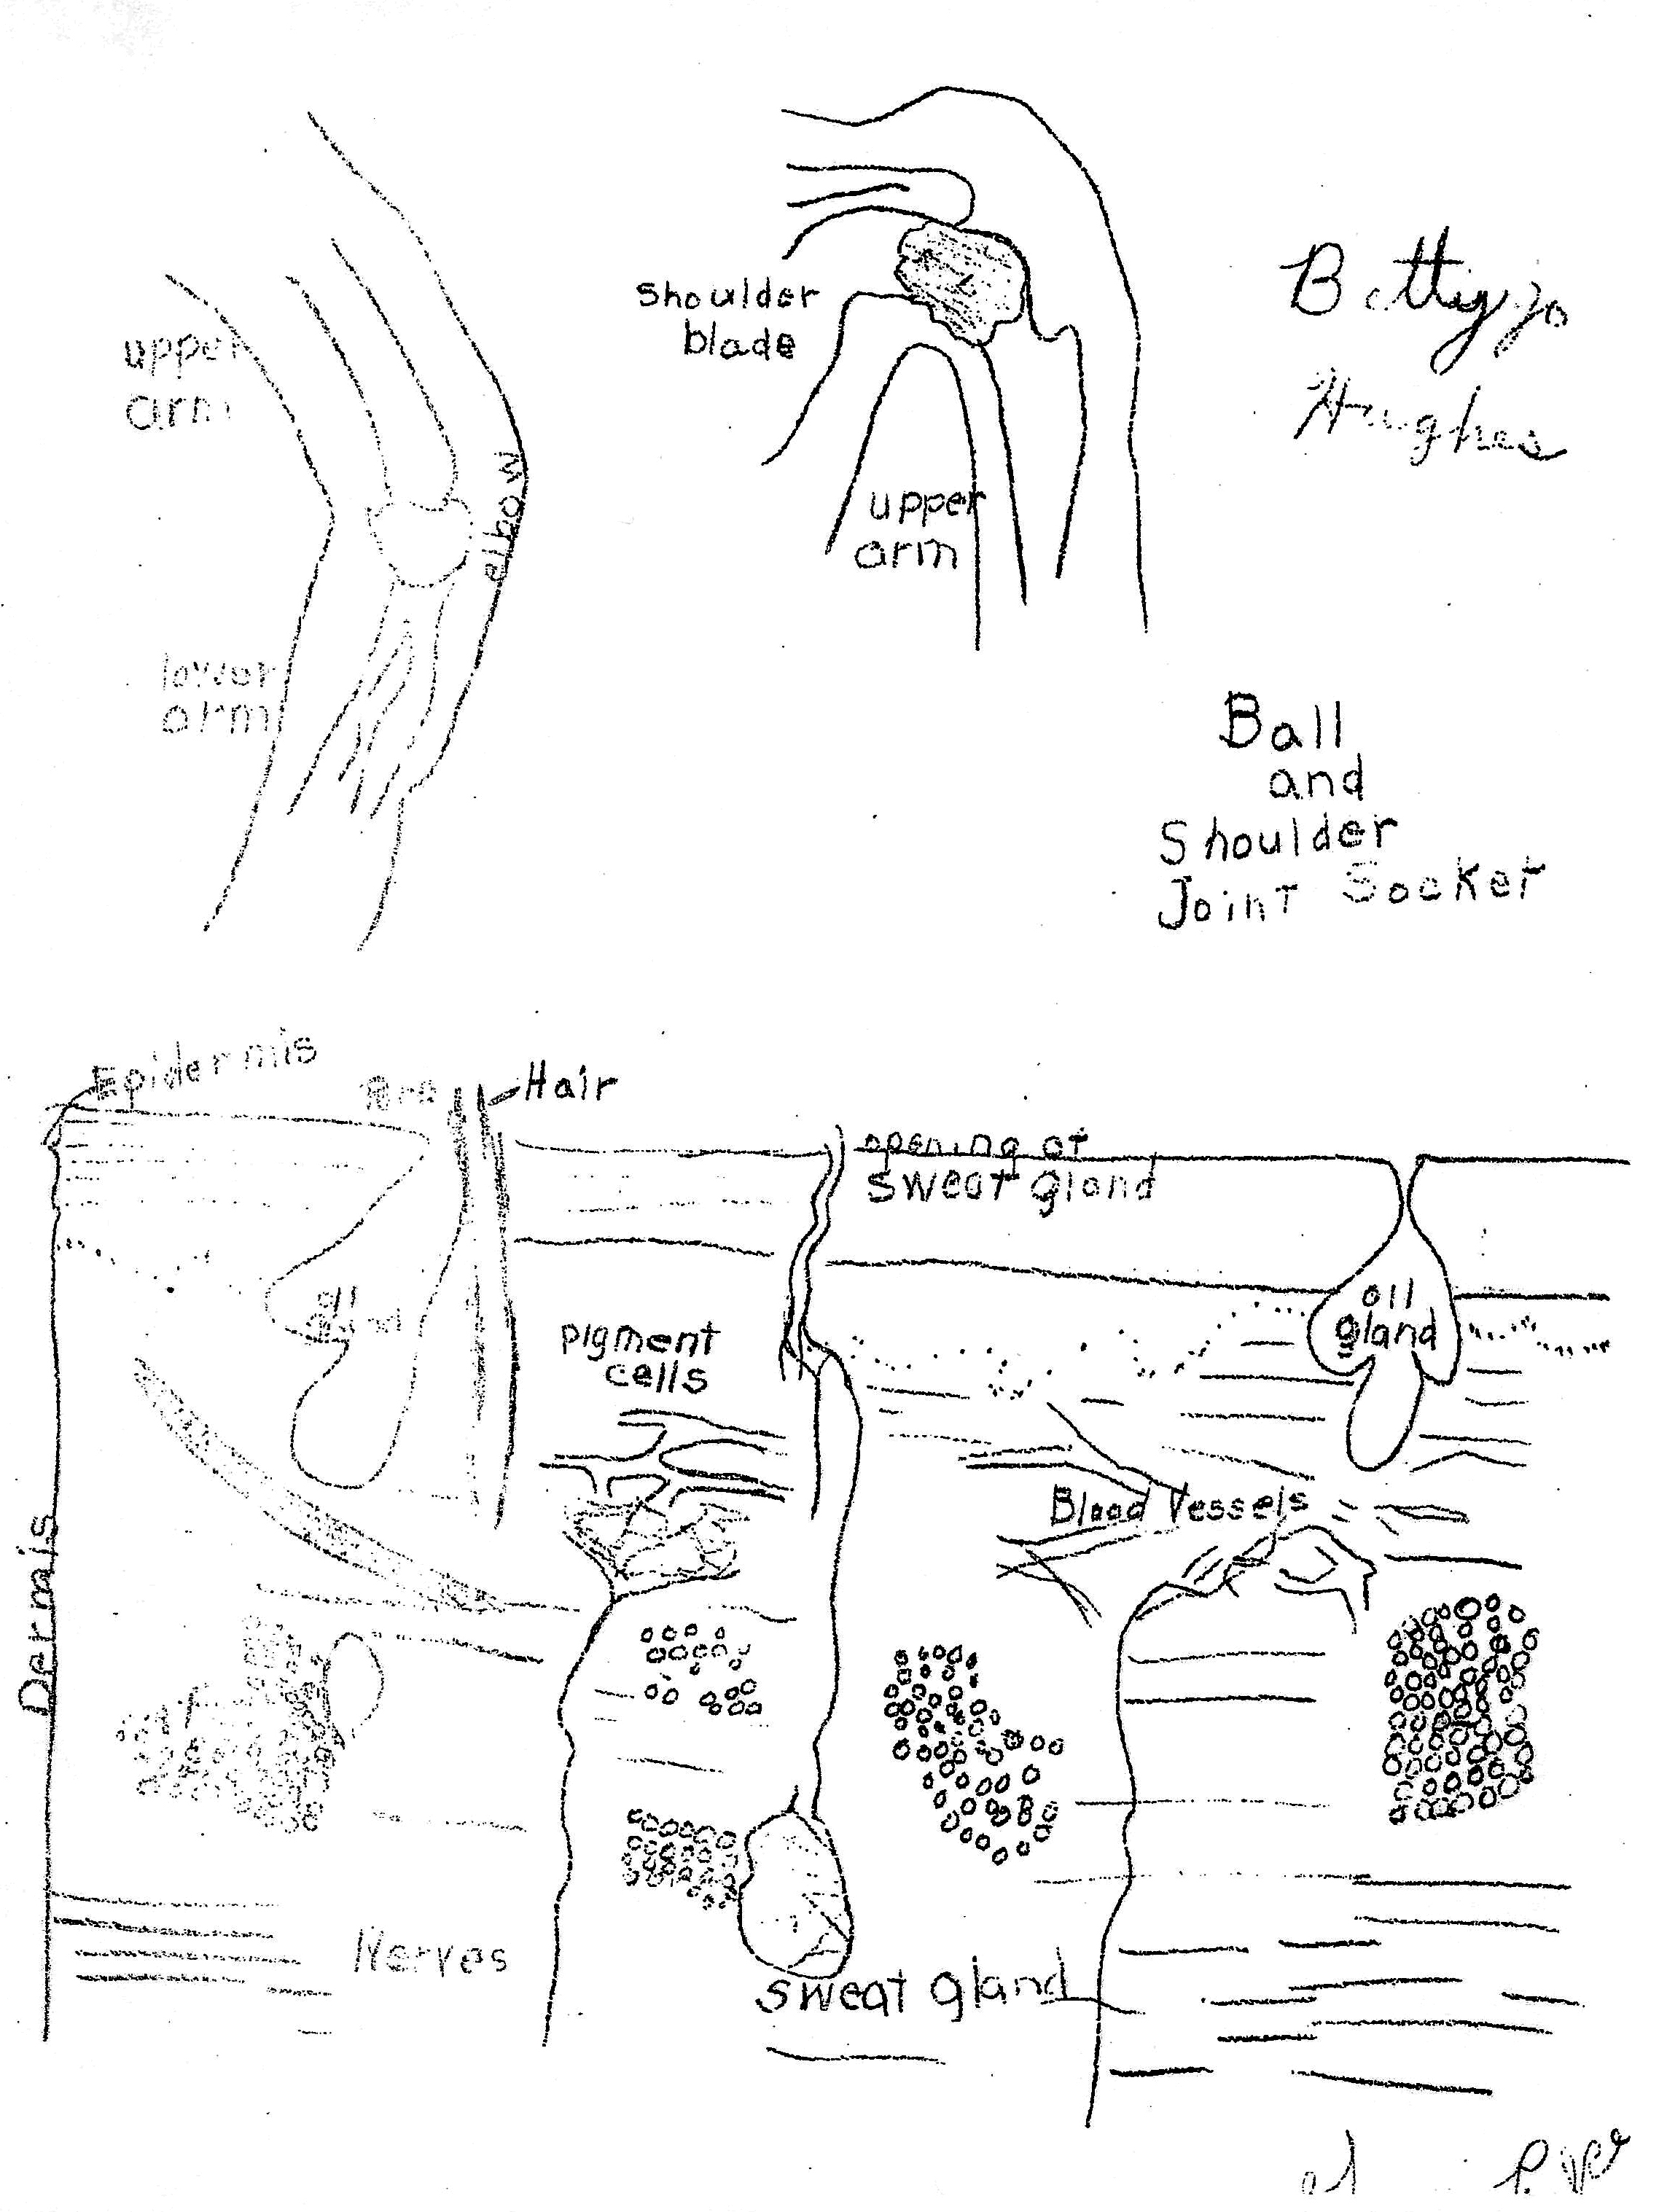 upper
arm
elbow
lower
arm
Shoulder
blade
upper
arm
Hughes
Ball
and
Shoulder
Joint Socket
Epidermis
Pore
Hair
opening of
sweat gland
oil
gland
pigment
cells
oil
gland
Blood Vessels
Dermis
Nerves
sweat gland